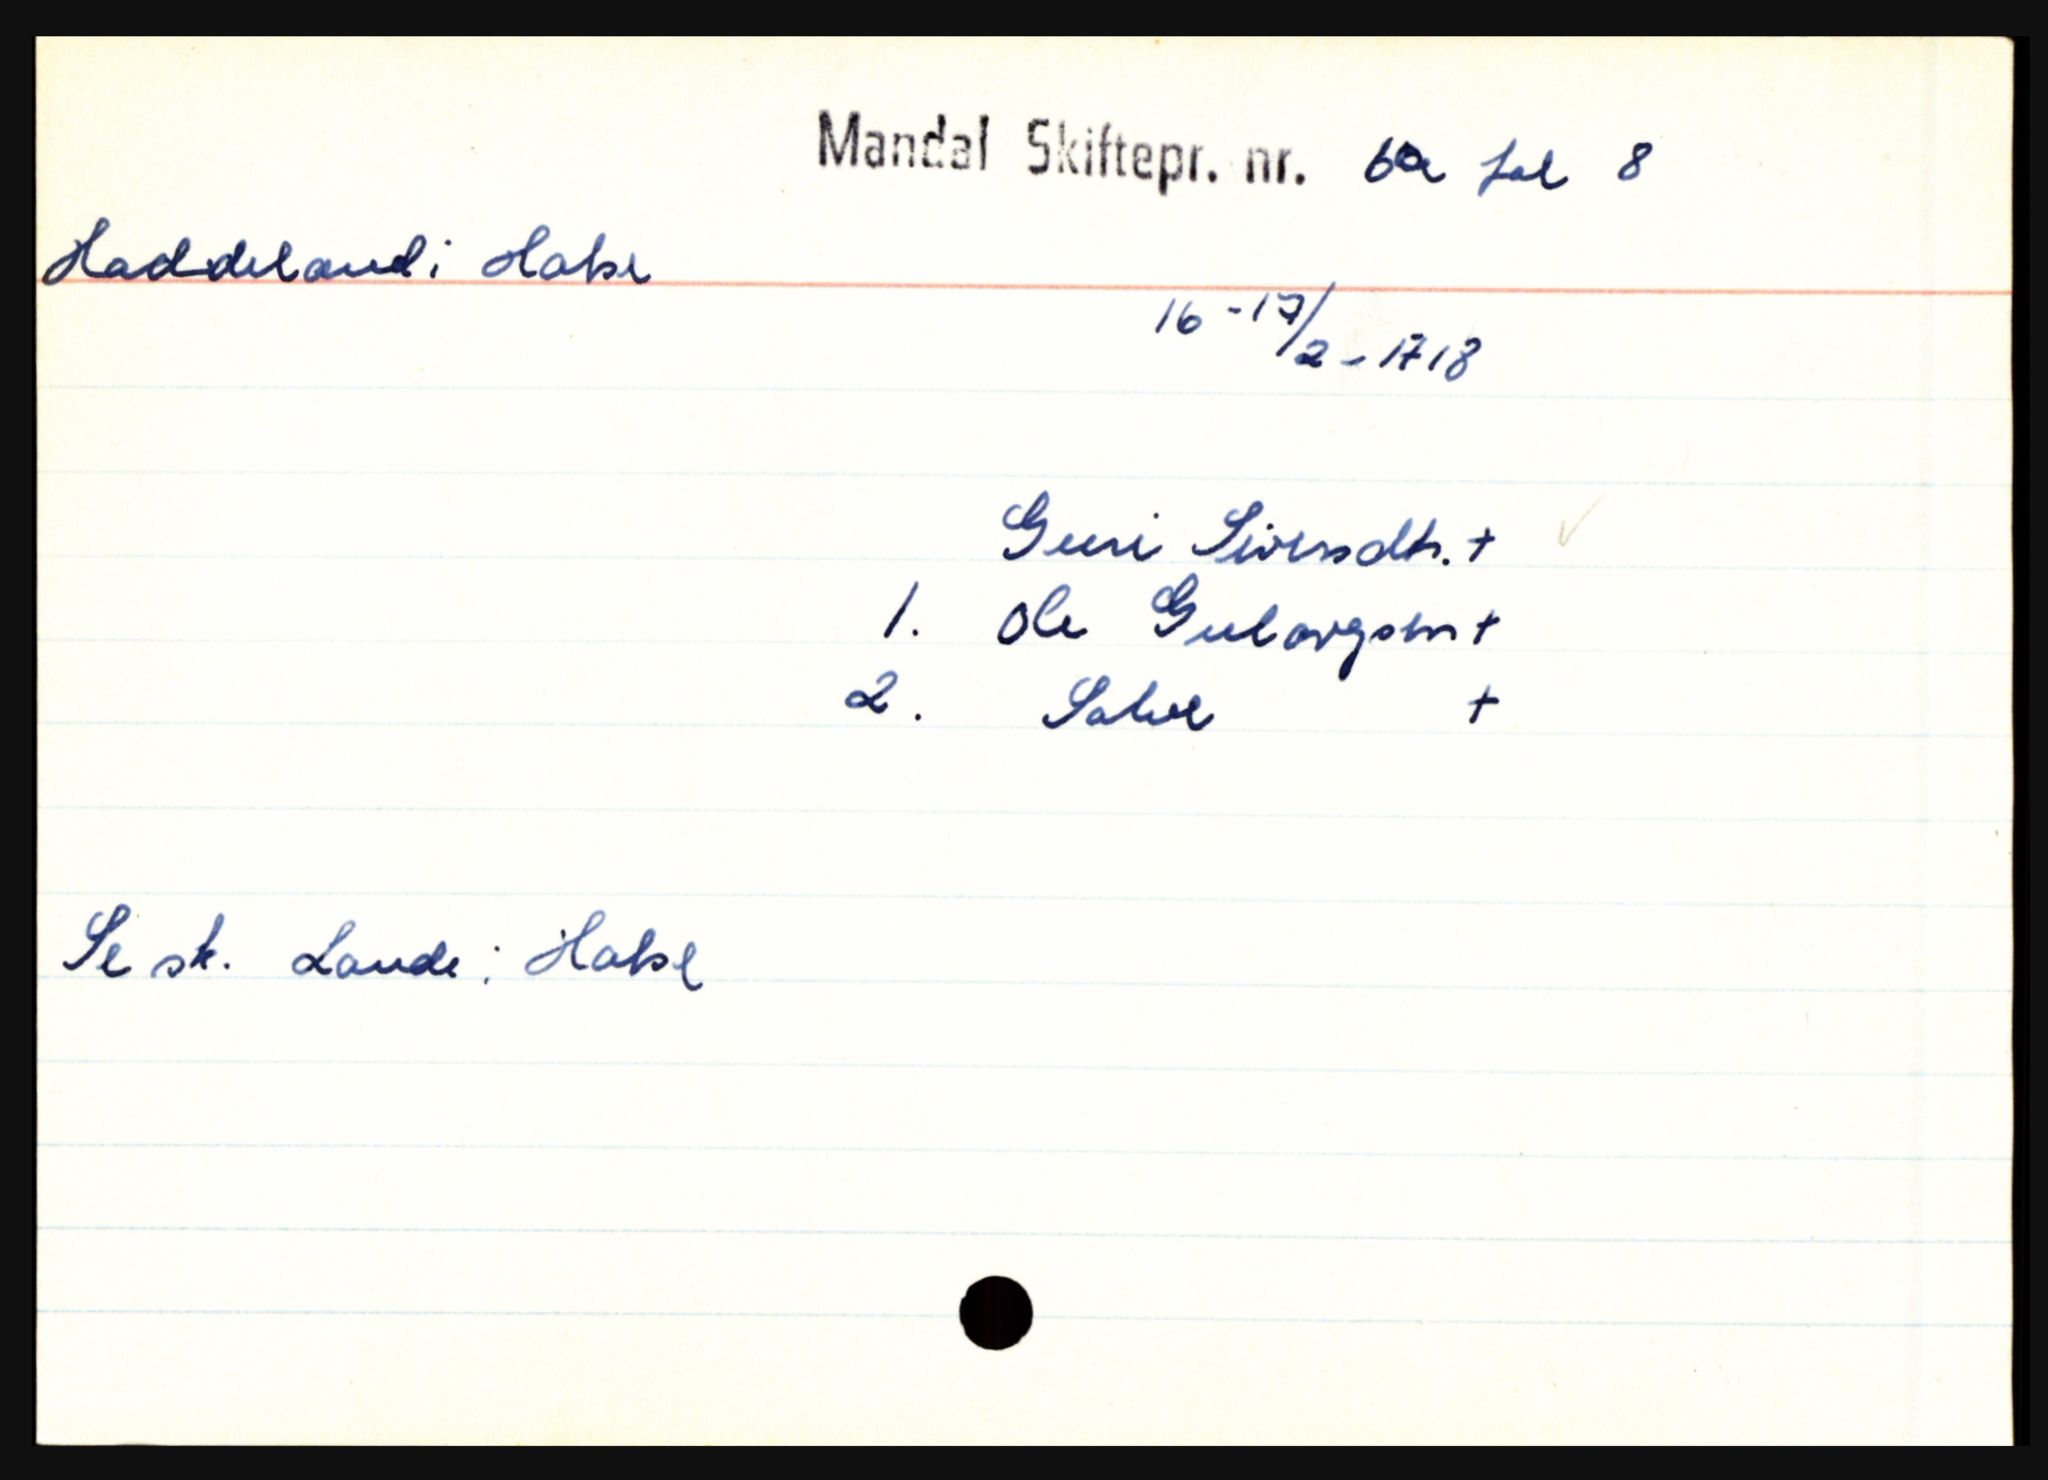 Mandal Skiftepr. nr. 6a fol 8
Haddeland i Halse
16-17/2-1718
Guri Siversdtr. +
1. Ole Gulovgsen +
2. Salve +
Se sk. Lande i Halse